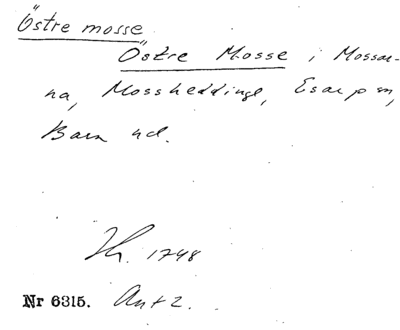 Östre mosse
Östre Mosse i Mossar-
na, Mossheddinge, Esarp sn,
Bara hd.
1748
Nr 6315. Ant 2.